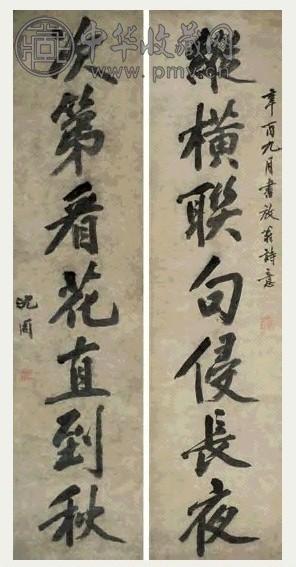 中华收藏网
辛酉九月書放翁詩意
縱橫聯句侵長夜
次第看花直到秋